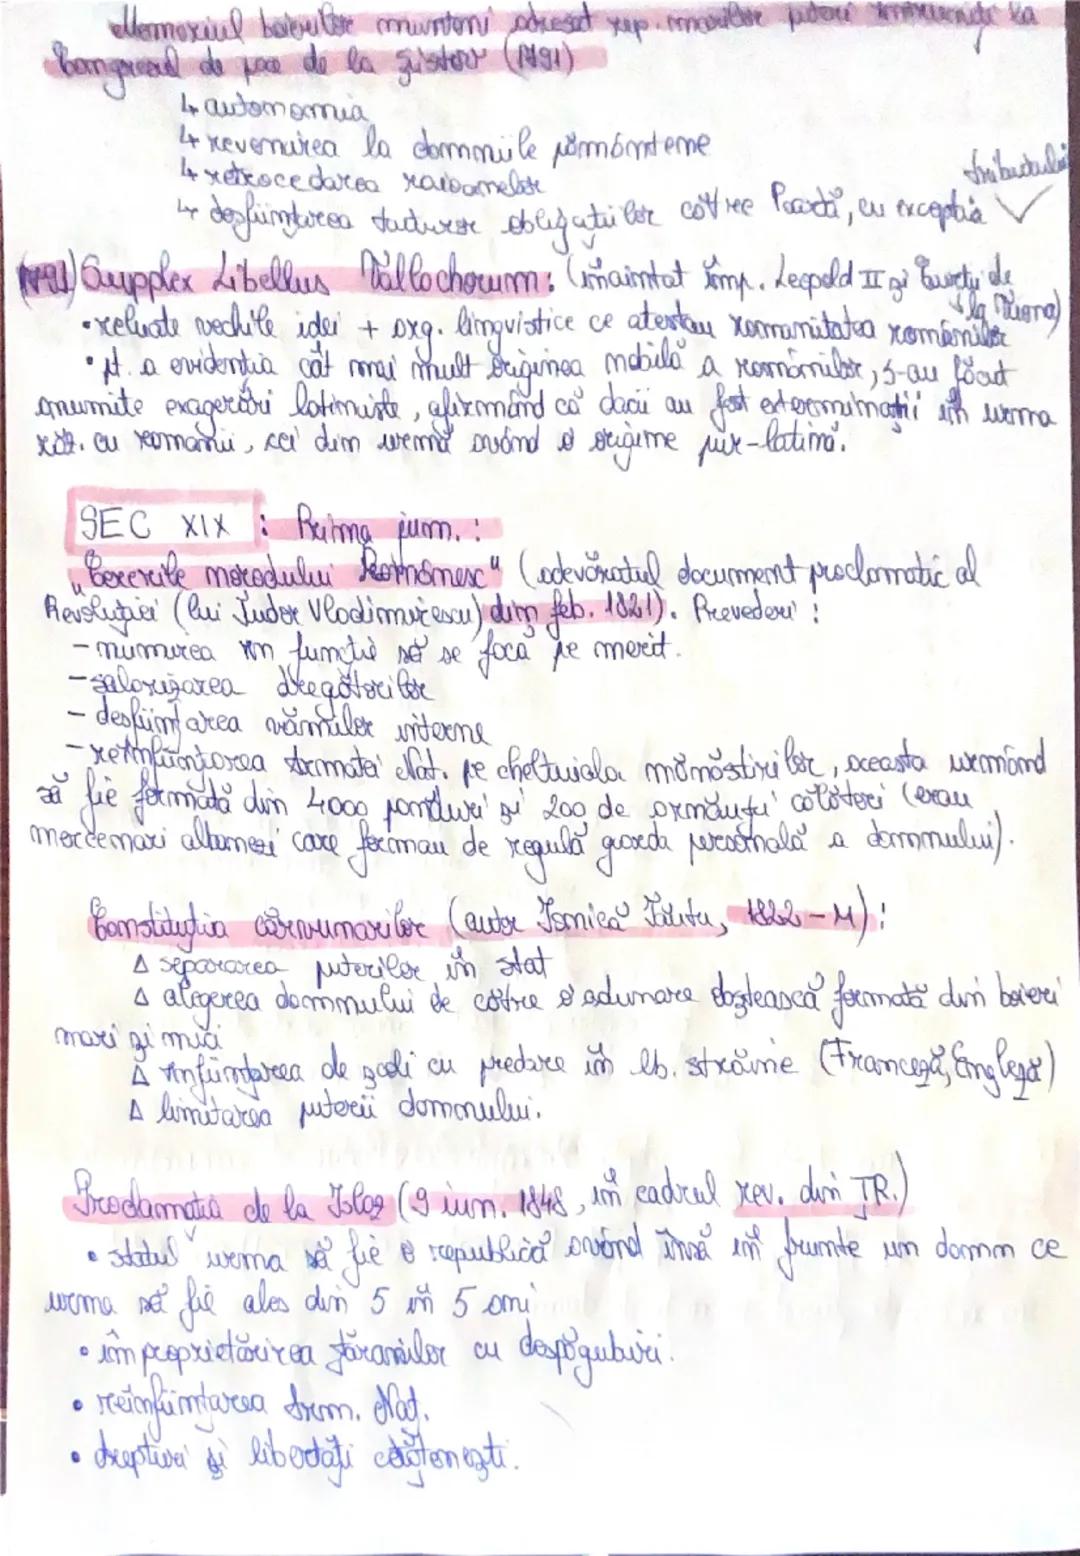 Memoriul boierilor munteni adresat rep. marilor puteri întrunite la
Congresul de pace de la Şiştov (1791)
↳ autonomia
↳ revenirea la domniile pământene
↳ retrocedarea raialelor
↳ desfiinţarea tuturor obligaţiilor către Poartă, cu excepţia tributului
(1791) Supplex Libellus Vallachorum: (înaintat împ. Leopold II şi Curţii de la Viena)
• reluate vechile idei + arg. lingvistice ce atestau romanitatea românilor
• pt. a evidenţia cât mai mult originea nobilă a românilor, s-au făcut
anumite exagerări latiniste, afirmând că dacii au fost exterminaţi în urma
răz. cu romanii, cei din urmă având o origine pur-latină.
SEC XIX : Prima jum. :
„Cererile norodului Românesc" (adevăratul document proclamatic al
Revoluţiei (lui Tudor Vladimirescu) din feb. 1821). Prevederi :
- numirea în funcţie să se facă pe merit.
- salarizarea dregătorilor
- desfiinţarea vămilor interne
- reînfiinţarea Armatei Nat. pe cheltuiala mănăstirilor, aceasta urmând
să fie formată din 4000 panduri şi 200 de arnăuţi călători (erau
mercenari albanezi care formau de regulă garda personală a domnului).
Constituţia cărvunarilor (autor Ionică Tăutu, 1822 - M) :
Δ separarea puterilor în stat
Δ alegerea domnului de către o adunare obştească formată din boieri
mari şi mici
Δ înfiinţarea de şcoli cu predare în lb. străine (Franceză, Engleză)
Δ limitarea puterii domnului.
Proclamaţia de la Islaz (9 iun. 1848, în cadrul rev. din ŢR.)
• statul urma să fie o republică având însă în frunte un domn ce
urma să fie ales din 5 în 5 ani
• împroprietărirea ţăranilor cu despăgubiri.
• reînfiinţarea Arm. Nat.
• drepturi şi libertăţi cetăţeneşti.